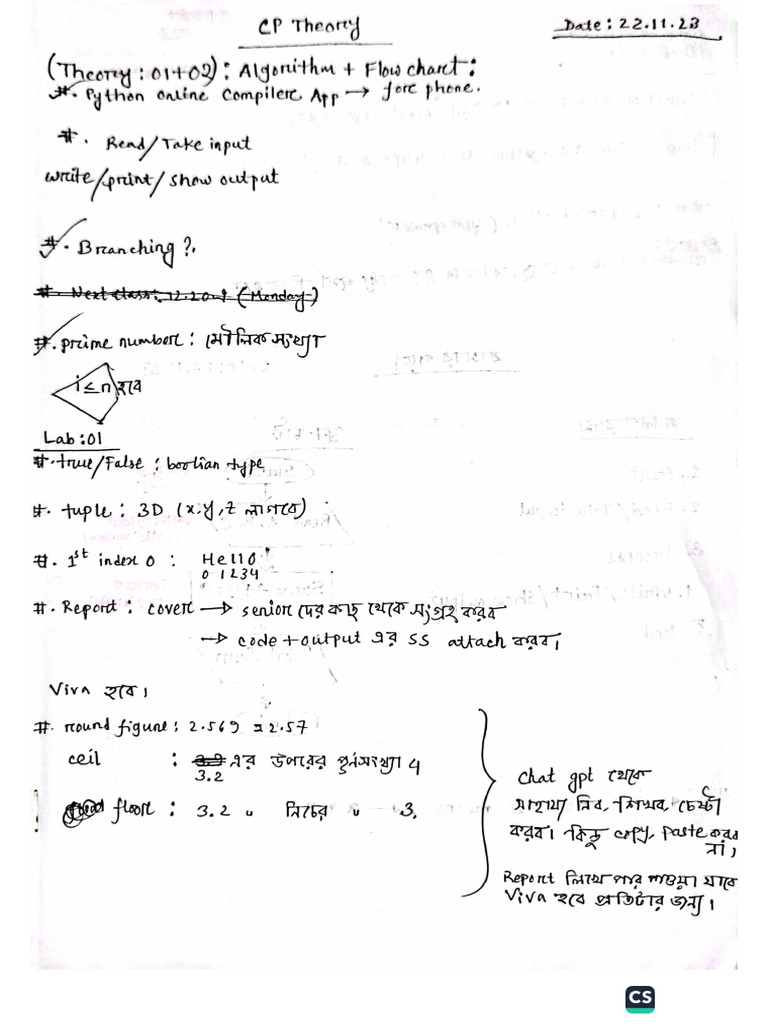 CP Theory
Date: 22.11.23
(Theory: 01+02): Algorithm + Flow chart:
#. Python online Compiler App → for phone.
#. Read/Take input
write/print/show output
#. Branching?
#. Next class: (Monday)
#. prime number: মৌলিক সংখ্যা
i≤n হবে
Lab:01
#. true/False: boolian type
#. tuple: 3D (x,y,z লাগবে)
#. 1st index 0: Hello
0 1234
#. Report: cover → senior দের কাছ থেকে সংগ্রহ করব
→ code + output এর SS attach করব।
Viva হবে।
#. round figure: 2.569 = 2.57
ceil : 3.2 এর উপরের পুর্নসংখ্যা 4
3.2
floor : 3.2 " নিচের " 3.
chat gpt থেকে
সাহায্য নিব, শিখব, চেষ্টা
করব। কিন্তু copy, paste করব
না,
Report লিখে পার পাওয়া যাবে
Viva হবে প্রতিটার জন্য।
CS